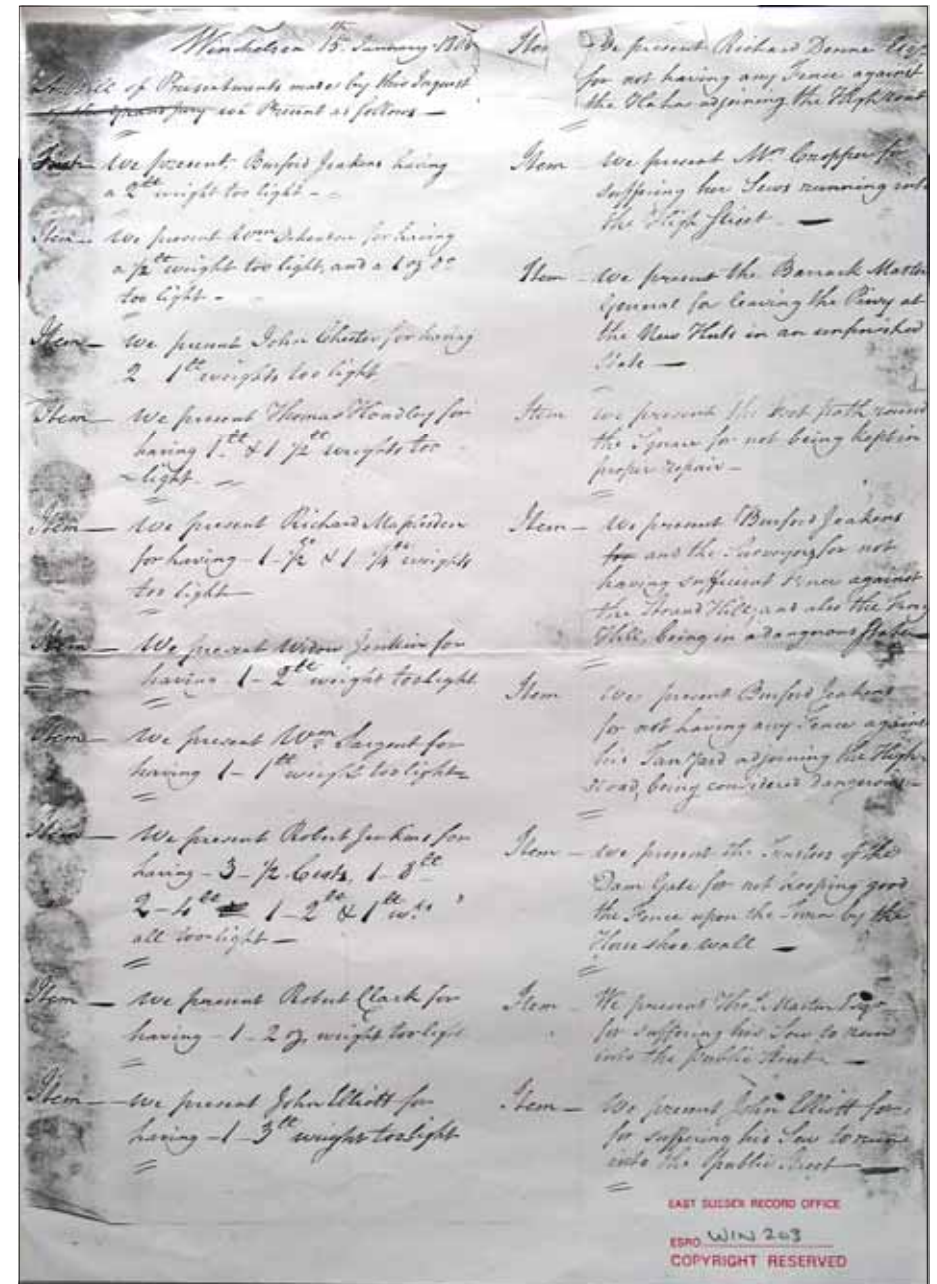 Winchelsea 15th January 180
of Presentments made by this Inquest
we Present as follows —
First — We present Burford Jeakens having
a 2 lb weight too light —
Item — We present Wm for having
a ½ lb weight too light, and a 1 oz Do
too light —
Item — We present John Chester for having
2 1 lb weights too light
Item — We present Thomas Hoadley for
having 1 lb & 1 ½ lb weights too
light —
Item — We present Richard Maplesden
for having — 1 - ½ & 1 ¼ lb weights
too light —
Item — We present Widow Jenkins for
having 1 - 2 lb weight too light
Item — We present Wm Sargent for
having 1 - 1 lb weight too light
Item — We present Robert Jenkins for
having — 3 - ½ Cwts, 1 - 8 lb
2 - 4 lb 1 - 2 lb & 1 lb wts
all too light —
Item — We present Robert Clark for
having — 1 - 2 oz weight too light
Item — We present John Elliott for
having — 1 - 3 lb weight too light
Item We present Richard Denne Esqr
for not having any Fence against
the adjoining the High road
Item — We present Mrs Cropper for
suffering her Sews running into
the High Street —
Item — We present the Barrack Master
General for leaving the Privy at
the New Huts in an unfinished
State —
Item We present the foot path round
the Square for not being kept in
proper repair —
Item — We present Burford Jeakens
for and the Surveyors for not
having sufficient Fence against
the Strand Hill, and also the
Hill, being in a dangerous State —
Item We present Burford Jeakens
for not having any Fence against
his Tan Yard adjoining the High
Road, being considered dangerous —
Item — We present the Trustees of the
Dam Gate for not keeping good
the Fence upon the by the
Horse shoe wall —
Item — We present Thos Martin Esqr
for suffering his Sew to run
into the public Street —
Item — We present John Elliott for
for suffering his Sew to run
into the public Street —
EAST SUSSEX RECORD OFFICE
ESRO WIN 203
COPYRIGHT RESERVED